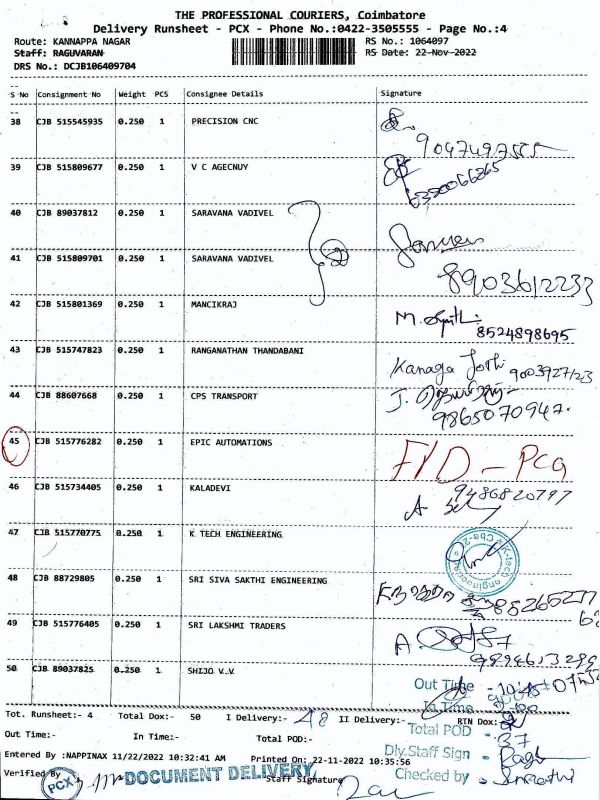 THE PROFESSIONAL COURIERS, Coimbatore
Delivery Runsheet - PCX - Phone No.:0422-3505555 - Page No.:4
Route: KANNAPPA NAGAR RS No.: 1064097
Staff: RAGUVARAN RS Date: 22-Nov-2022
DRS No.: DCJB106409704
S No Consignment No Weight PCS Consignee Details Signature
38 CJB 515545935 0.250 1 PRECISION CNC
39 CJB 515809677 0.250 1 V C AGECNUY
6380066265
40 CJB 89037812 0.250 1 SARAVANA VADIVEL
41 CJB 515809701 0.250 1 SARAVANA VADIVEL
8903612233
42 CJB 515801369 0.250 1 MANCIKRAJ
8524898695
43 CJB 515747823 0.250 1 RANGANATHAN THANDABANI
Kanaga Jothi 9003927123
44 CJB 88607668 0.250 1 CPS TRANSPORT
9865070947.
45 CJB 515776282 0.250 1 EPIC AUTOMATIONS
46 CJB 515734405 0.250 1 KALADEVI
9486820797
47 CJB 515770775 0.250 1 K TECH ENGINEERING
48 CJB 88729805 0.250 1 SRI SIVA SAKTHI ENGINEERING
49 CJB 515776405 0.250 1 SRI LAKSHMI TRADERS
50 CJB 89037825 0.250 1 SHIJO V.V
Out Time
In Time
Tot. Runsheet:- 4 Total Dox:- 50 I Delivery:- 48 II Delivery:- RTN Dox:
Total POD - 37
Out Time :- In Time:- Total POD:-
Dly.Staff Sign -
Entered By :NAPPINAX 11/22/2022 10:32:41 AM Printed On: 22-11-2022 10:35:56
Checked by -
Verified By PCX DOCUMENT DELIVERY Staff Signature